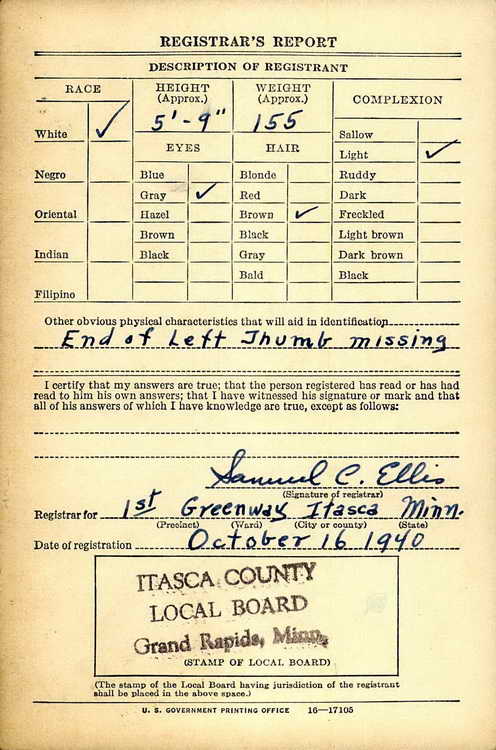 REGISTRAR'S REPORT
DESCRIPTION OF REGISTRANT
RACE
HEIGHT
(Approx.)
WEIGHT
(Approx.)
COMPLEXION
5'-9"
155
White ✓
Sallow
EYES
HAIR
Light ✓
Negro
Blue
Blonde
Ruddy
Gray ✓
Red
Dark
Oriental
Hazel
Brown ✓
Freckled
Brown
Black
Light brown
Indian
Black
Gray
Dark brown
Bald
Black
Filipino
Other obvious physical characteristics that will aid in identification
End of Left Thumb missing
I certify that my answers are true; that the person registered has read or has had
read to him his own answers; that I have witnessed his signature or mark and that
all of his answers of which I have knowledge are true, except as follows:
Samuel C. Ellis
(Signature of registrar)
Registrar for 1st Greenway Itasca Minn.
(Precinct) (Ward) (City or county) (State)
Date of registration October 16 1940
ITASCA COUNTY
LOCAL BOARD
Grand Rapids, Minn.
(STAMP OF LOCAL BOARD)
(The stamp of the Local Board having jurisdiction of the registrant
shall be placed in the above space.)
U. S. GOVERNMENT PRINTING OFFICE 16—17105